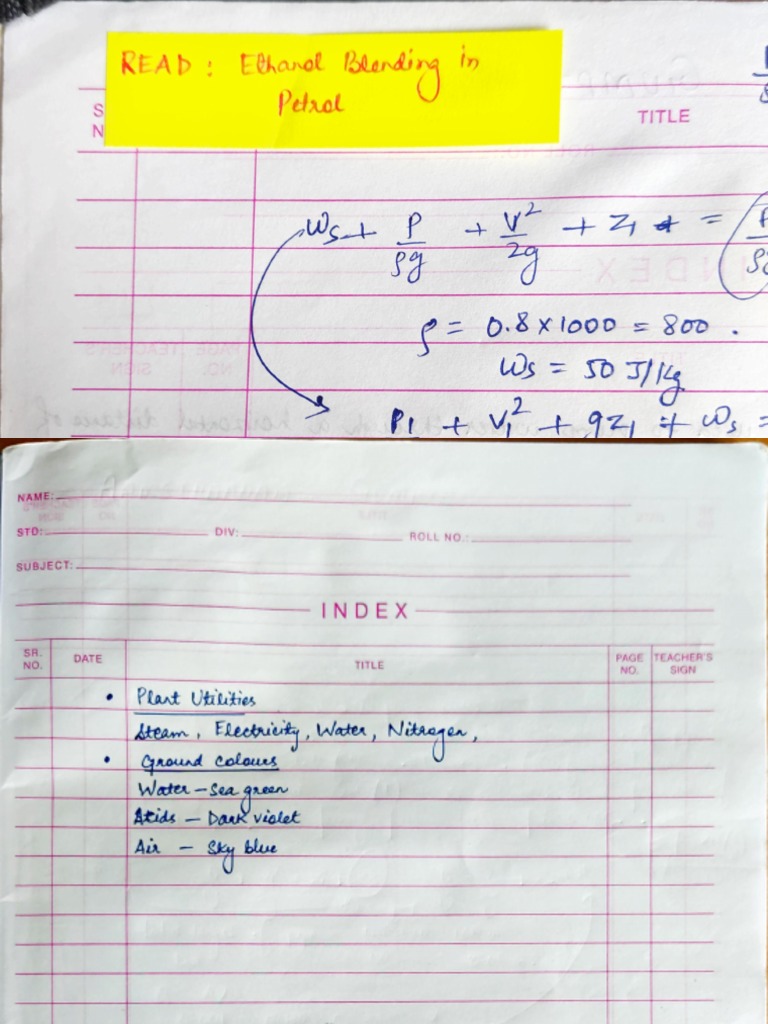 READ : Ethanol Blending in
Petrol
S
N
TITLE
Ws + P/ρg + V²/2g + Z1 =
ρ = 0.8 × 1000 = 800 .
Ws = 50 J/kg
P1 + V1² + gZ1 + Ws =
NAME:
STD: DIV: ROLL NO.:
SUBJECT:
INDEX
SR. NO. DATE TITLE PAGE NO. TEACHER'S SIGN
• Plant Utilities
Steam, Electricity, Water, Nitrogen,
• Ground colours
Water – Sea green
Acids – Dark violet
Air – Sky blue